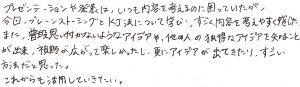 プレゼンテーションや発表は、いつも内容を考えるのに困っていたが、
今回、ブレーンストーミングとKJ法について学び、すごく内容を考えやすく感じた。
また、普段思い付かないようなアイデアや、他の人の独特なアイデアを知ること
が出来、視野が広がって楽しかったし、更にアイデアが出てきたり、すごい
方法だと思った。
これからも活用していきたい。